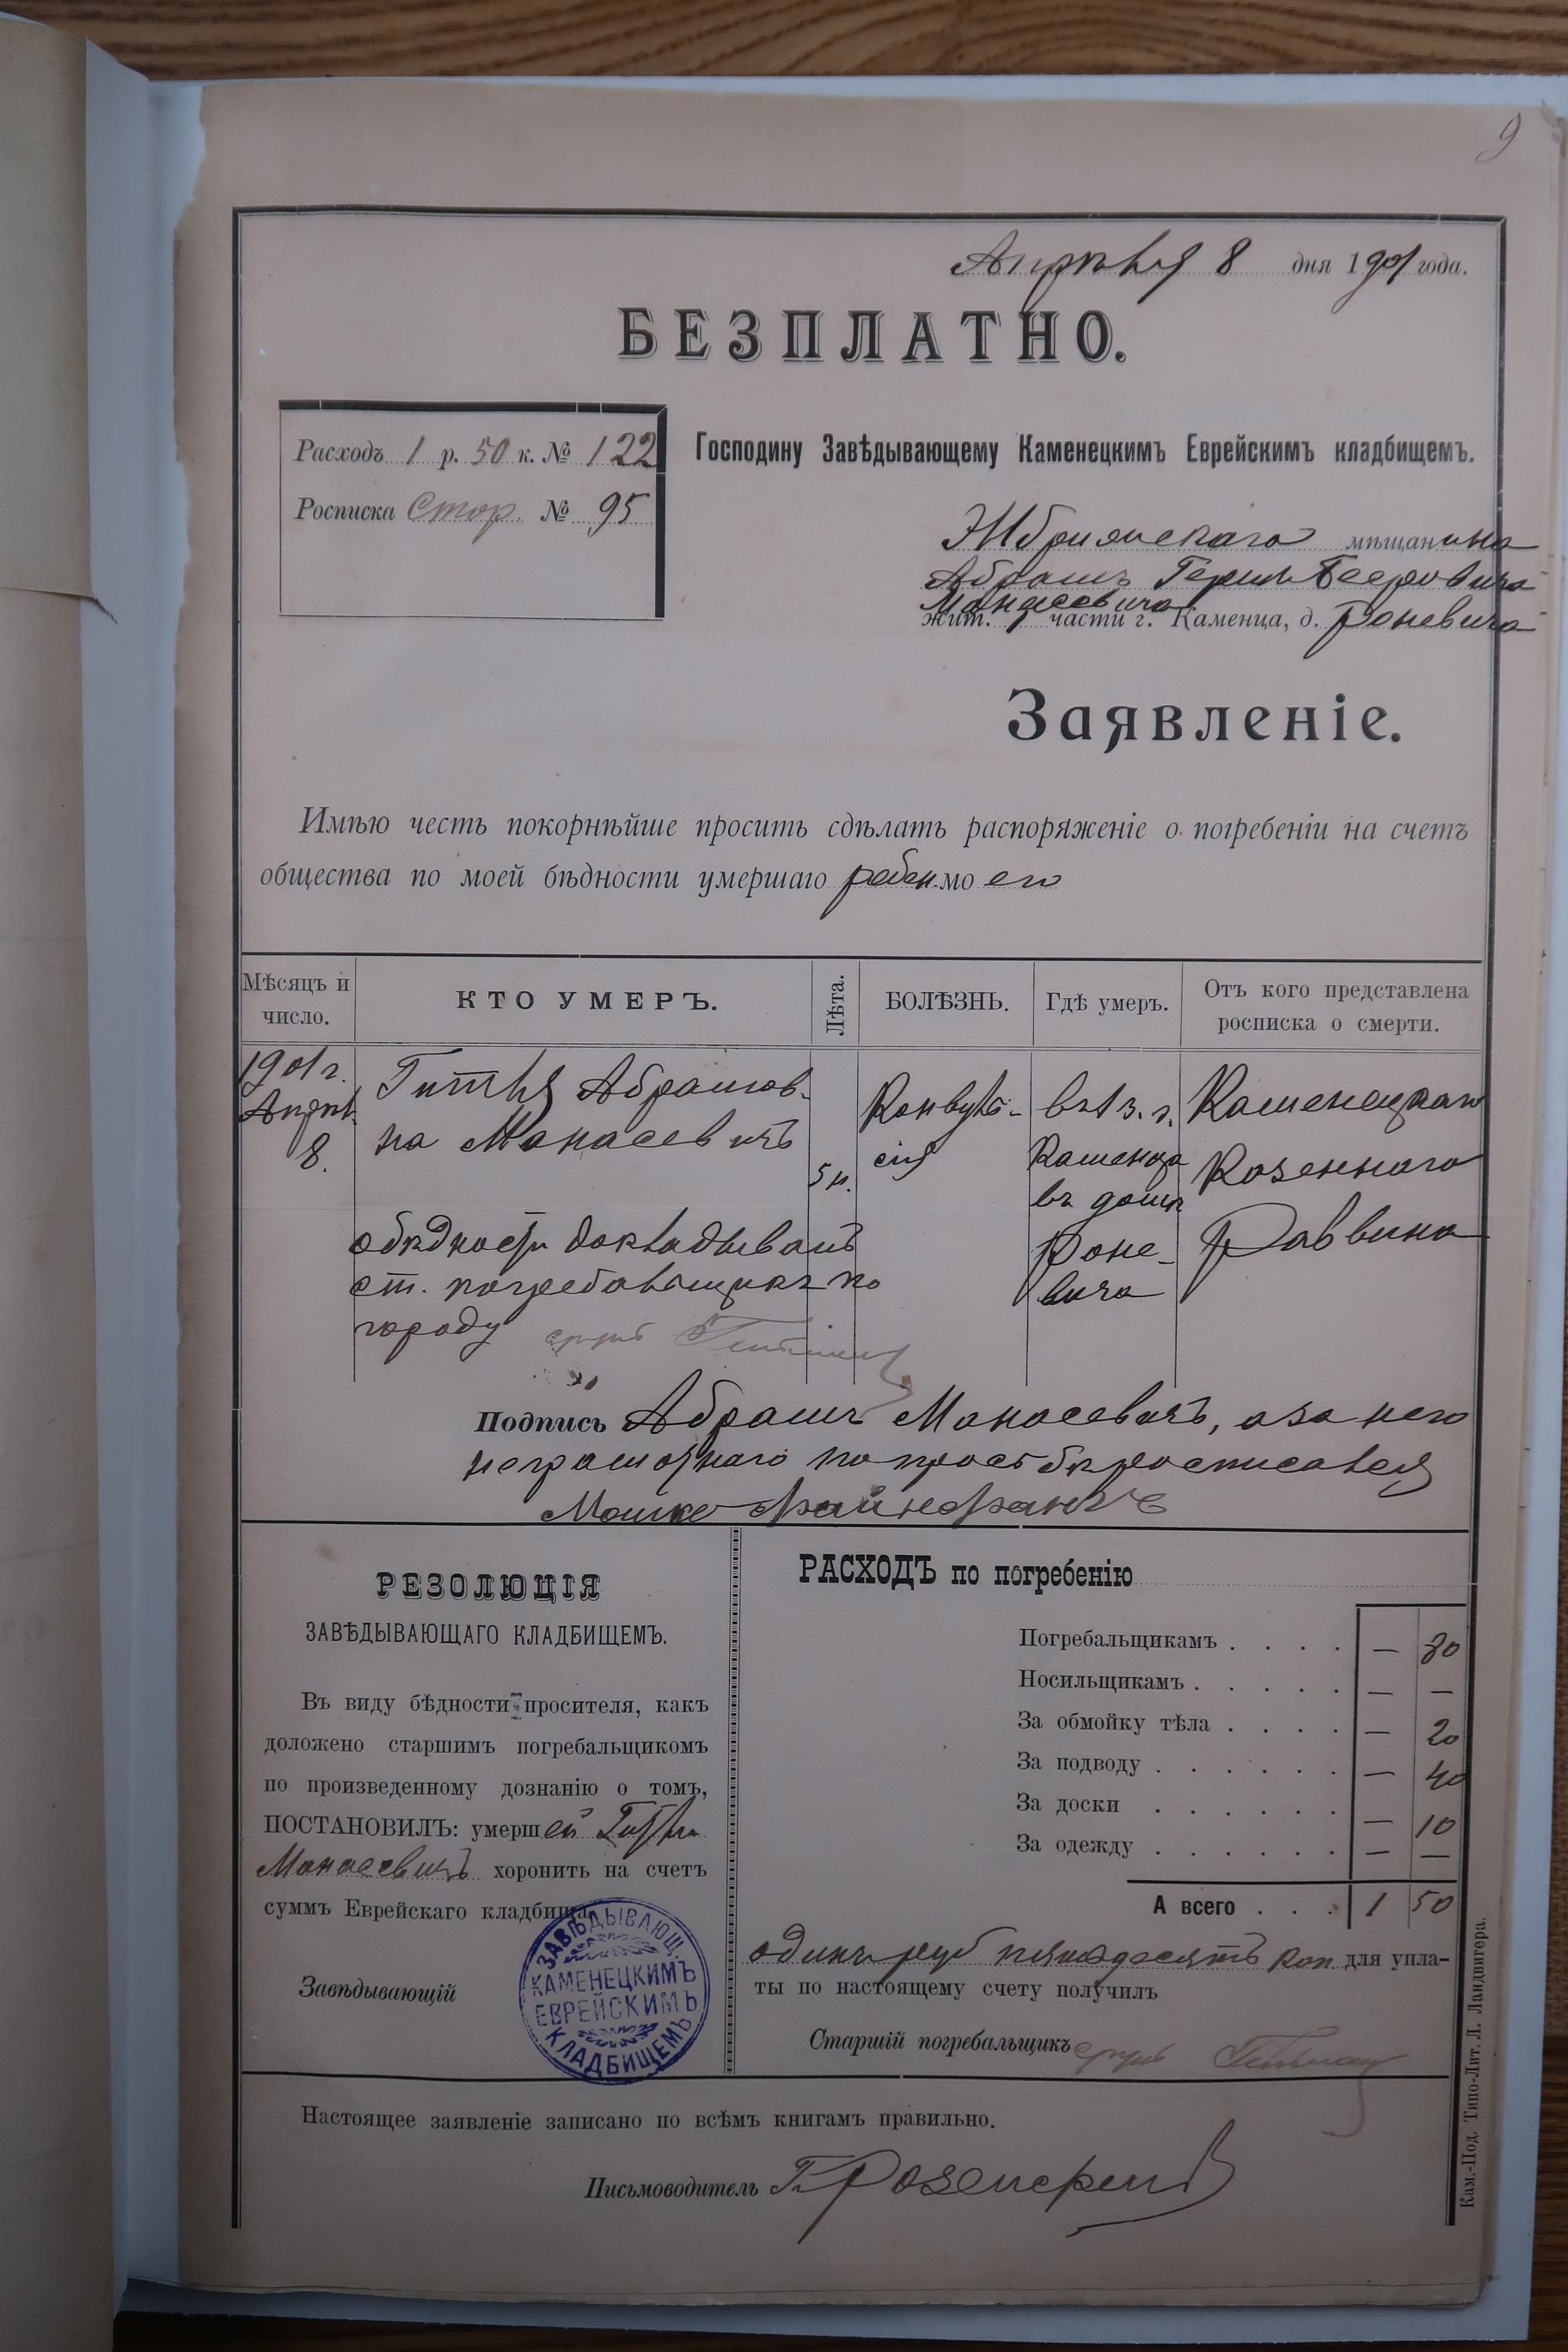 9
Апрѣля 8 дня 1901 года.
БЕЗПЛАТНО.
Расходъ 1 р. 50 к. № 122
Росписка Стор. № 95
Господину Завѣдывающему Каменецкимъ Еврейскимъ кладбищемъ.
Жбрианскаго мѣщанина
Абрамъ Герш Беерович
Манасевича
жит. 1 части г. Каменца, д. Роневича
Заявленіе.
Имѣю честь покорнѣйше просить сдѣлать распоряженіе о погребеніи на счетъ
общества по моей бѣдности умершаго ребен.мо его
Мѣсяцъ и число.
КТО УМЕРЪ.
Лѣта.
БОЛѢЗНЬ.
Гдѣ умеръ.
Отъ кого представлена росписка о смерти.
1901 г.
Апрѣл.
8.
Гитля Абрамов-
на Манасевичъ
5 н.
Конвуль-
сія
въ 1 з. г.
Каменца
въ домѣ
Роне-
вича
Каменецкаго
Казеннаго
Раввина
о бѣдности докладывалъ
ст. погребальщикъ по
городу
Подпись Абрамъ Манасевичъ, а за него
неграмотнаго по просьбѣ росписался
Мошко Файнфанъ
РЕЗОЛЮЦІЯ
ЗАВѢДЫВАЮЩАГО КЛАДБИЩЕМЪ.
Въ виду бѣдности просителя, какъ
доложено старшимъ погребальщикомъ
по произведенному дознанію о томъ,
ПОСТАНОВИЛЪ: умершей Гитли
Манасевичъ хоронить на счетъ
суммъ Еврейскаго кладбища.
Завѣдывающій
ЗАВѢДЫВАЮЩ.
КАМЕНЕЦКИМЪ
ЕВРЕЙСКИМЪ
КЛАДБИЩЕМЪ
РАСХОДЪ по погребенію
Погребальщикамъ . . . . — 80
Носильщикамъ . . . . . — —
За обмойку тѣла . . . . — 20
За подводу . . . . . . — 40
За доски . . . . . . — 10
За одежду . . . . . . — —
А всего . . . 1 50
одинъ руб пятьдесятъ коп для упла-
ты по настоящему счету получилъ
Старшій погребальщикъ
Настоящее заявленіе записано по всѣмъ книгамъ правильно.
Письмоводитель
Кам.-Под. Типо-Лит. Л. Ландвигера.